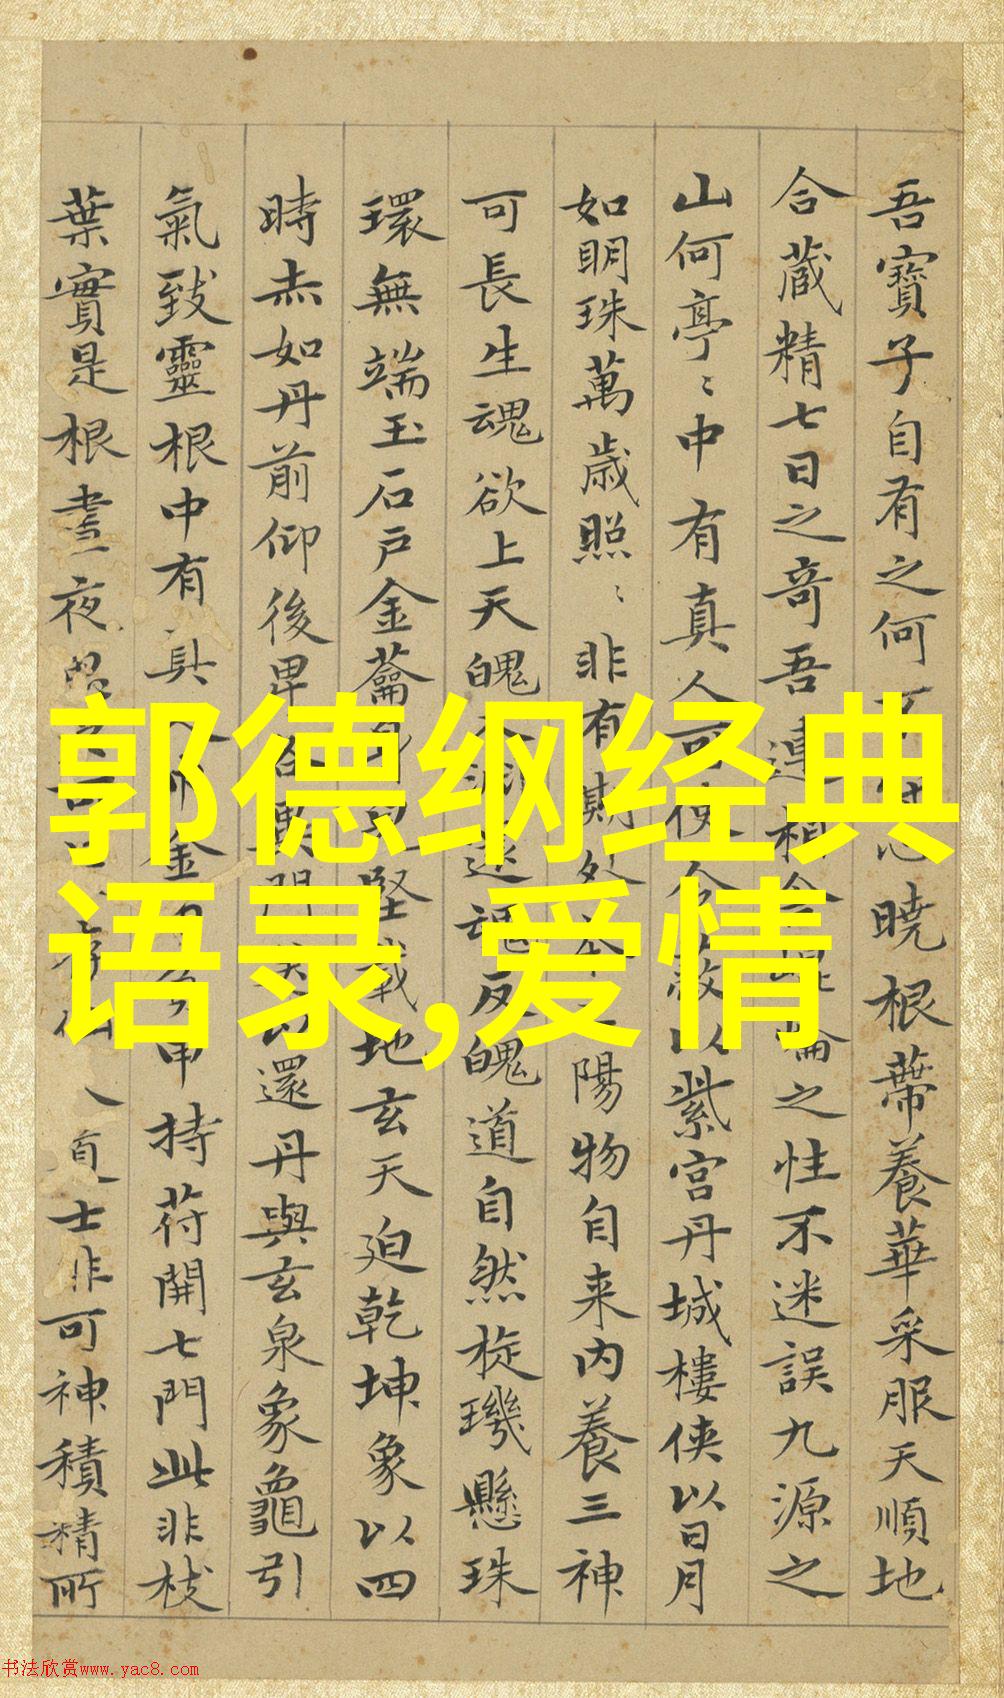 吾寶子自有之何 曉根蔕養華采服天順地
合藏精七日之奇吾連相合崐崘之性不迷誤九源之
山何亭〻中有真人可使令蔽以紫宮丹城樓俠以日月
如明珠萬歲照〻非有期 陽物自来內養三神
可長生魂欲上天魄 還魂反魄道自然琁璣懸珠
環無端玉石戶金籥 堅載地玄天迫乾坤象以四
時赤如丹前仰後卑 門 還丹與玄泉象龜引
氣致靈根中有真人 金 持苻開七門此非枝
葉實是根晝夜 士非可神積精所
郭德纲经典
语录,爱情
书法欣赏www.yac8.com